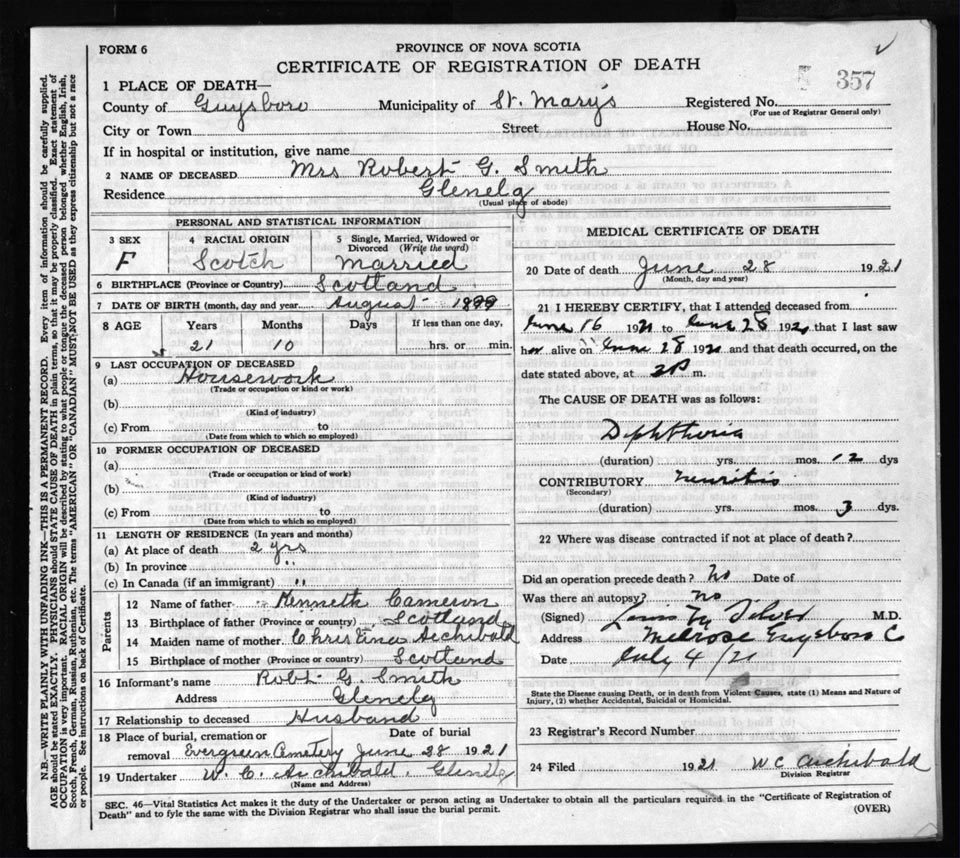 FORM 6
PROVINCE OF NOVA SCOTIA
CERTIFICATE OF REGISTRATION OF DEATH
357
1 PLACE OF DEATH—
County of Guysboro Municipality of St. Mary's Registered No.
(For use of Registrar General only)
City or Town Street House No.
If in hospital or institution, give name
2 NAME OF DECEASED Mrs Robert G. Smith
Residence Glenelg
(Usual place of abode)
PERSONAL AND STATISTICAL INFORMATION
3 SEX F
4 RACIAL ORIGIN Scotch
5 Single, Married, Widowed or Divorced (Write the word) Married
6 BIRTHPLACE (Province or Country) Scotland
7 DATE OF BIRTH (month, day and year) August 1899
8 AGE Years Months Days If less than one day,
21 10 hrs. or min.
9 LAST OCCUPATION OF DECEASED
(a) Housework
(Trade or occupation or kind or work)
(b)
(Kind of industry)
(c) From to
(Date from which to which so employed)
10 FORMER OCCUPATION OF DECEASED
(a)
(Trade or occupation or kind of work)
(b)
(Kind of industry)
(c) From to
(Date from which to which so employed)
11 LENGTH OF RESIDENCE (In years and months)
(a) At place of death 2 yrs
(b) In province "
(c) In Canada (if an immigrant) "
Parents
12 Name of father Kenneth Cameron
13 Birthplace of father (Province or country) Scotland
14 Maiden name of mother Christina Archibald
15 Birthplace of mother (Province or country) Scotland
16 Informant's name Robt. G. Smith
Address Glenelg
17 Relationship to deceased Husband
18 Place of burial, cremation or removal Date of burial
Evergreen Cemetery June 28 1921
19 Undertaker W. C. Archibald. Glenelg
(Name and Address)
MEDICAL CERTIFICATE OF DEATH
20 Date of death June 28 1921
(Month, day and year)
21 I HEREBY CERTIFY, that I attended deceased from
June 16 1921 to June 28 1921 that I last saw
her alive on June 28 1921 and that death occurred, on the
date stated above, at m.
The CAUSE OF DEATH was as follows:
Diphtheria
(duration) yrs. mos. 12 dys
CONTRIBUTORY neuritis
(Secondary)
(duration) yrs. mos. 3 dys.
22 Where was disease contracted if not at place of death?
Did an operation precede death? No Date of
Was there an autopsy? no
(Signed) M.D.
Address Melrose Guysboro Co
Date July 4/21
State the Disease causing Death, or in death from Violent Causes, state (1) Means and Nature of
Injury, (2) whether Accidental, Suicidal or Homicidal.
23 Registrar's Record Number
24 Filed 1921 W C Archibald
Division Registrar
SEC. 46—Vital Statistics Act makes it the duty of the Undertaker or person acting as Undertaker to obtain all the particulars required in the "Certificate of Registration of
Death" and to fyle the same with the Division Registrar who shall issue the burial permit.
(OVER)
N.B.—WRITE PLAINLY WITH UNFADING INK—THIS IS A PERMANENT RECORD. Every item of information should be carefully supplied.
AGE should be stated EXACTLY. PHYSICIANS should STATE CAUSE OF DEATH in plain terms, so that it may be properly classified. Exact statement of
OCCUPATION is very important. RACIAL ORIGIN will be described by stating to what people or tongue the deceased person belonged whether English, Irish,
Scotch, French, German, Russian, Ruthenian, etc. The terms "AMERICAN" OR "CANADIAN" MUST NOT BE USED as they express citizenship but not a race
or people. See instructions on back of Certificate.